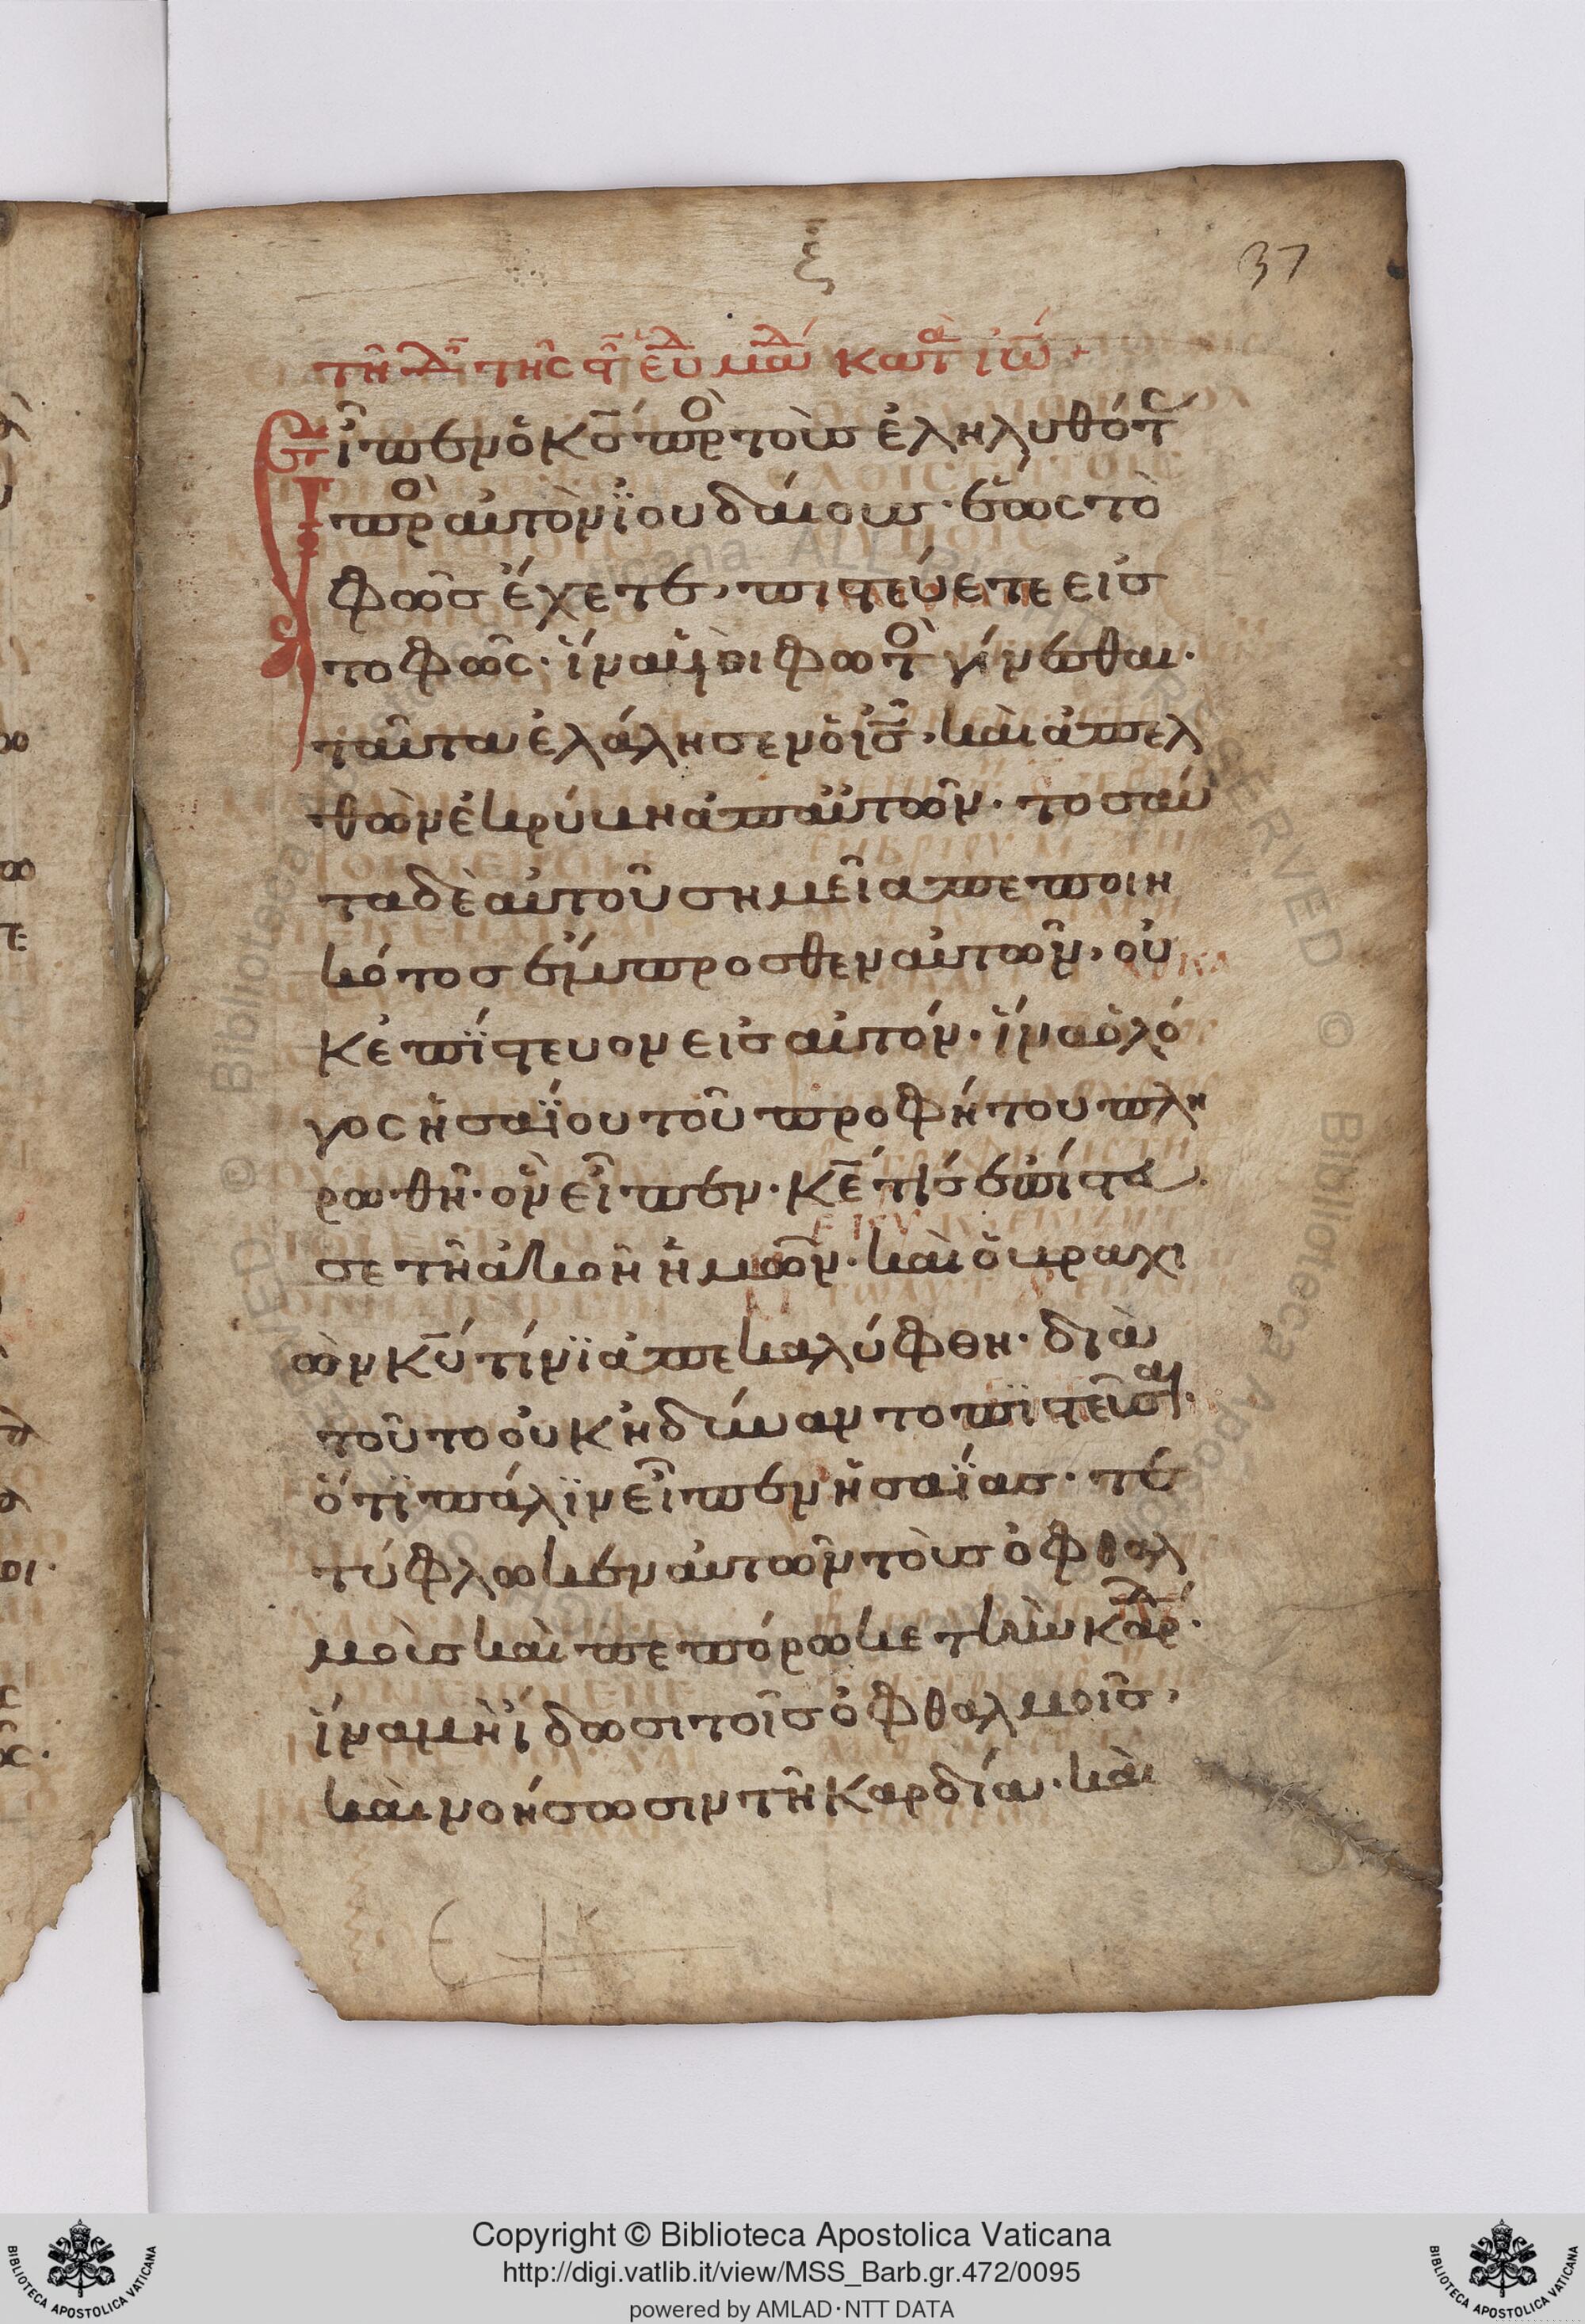 ξ
37
τῆ δ τῆς ϛ εὐαλ κατ ἰω +
Εἶπεν ὁ κς πρὸ τοὺσ ἐληλυθότ
πρὸ αὐτὸν ϊουδαίουσ · ἕως τὸ
φῶσ ἔχετε, πιστεύετε εἰσ
το φῶς · ἵνα ὑοὶ φωτὸ γένεσθαι ·
ταῦτα ἐλάλησεν ὁ ἰς, καὶ ἀπελ
θὼν ἐκρύκη ἀπ αὐτῶν · τοσαύ
τα δὲ αὐτοῦ σημεῖα πεποιη
κότοσ ἔμπροσθεν αὐτῶν, οὐ
κ ἐπίστευον εἰσ αὐτόν · ἵνα ὁ λό
γος ἠσαΐου τοῦ προφήτου πλη
ρωθῆ · ὃν εἶπεν · κε τίσ ἐπίστευ
σε τῆ ἀκοῆ ἡμῶν · καὶ ὁ κραχι
ὼν κυ τίνϊ ἀπεκαλύφθη · διὰ
τοῦτο οὐκ ἠδύναντο πϊστεῦσαι ·
ὅτϊ πάλϊν εἶπεν ἠσαΐασ · τε
τύφλωκεν αὐτῶν τοὺσ ὀφθαλ
μοὺσ καὶ πεπόρωκε τὴν καρδ ·
ἵνα μὴ ἴδωσι τοῖσ ὀφθαλμοῖσ,
καὶ νοήσωσιν τῆ καρδία · καὶ
Copyright © Biblioteca Apostolica Vaticana
http://digi.vatlib.it/view/MSS_Barb.gr.472/0095
powered by AMLAD·NTT DATA
BIBLIOTECA APOSTOLICA VATICANA
BIBLIOTECA APOSTOLICA VATICANA